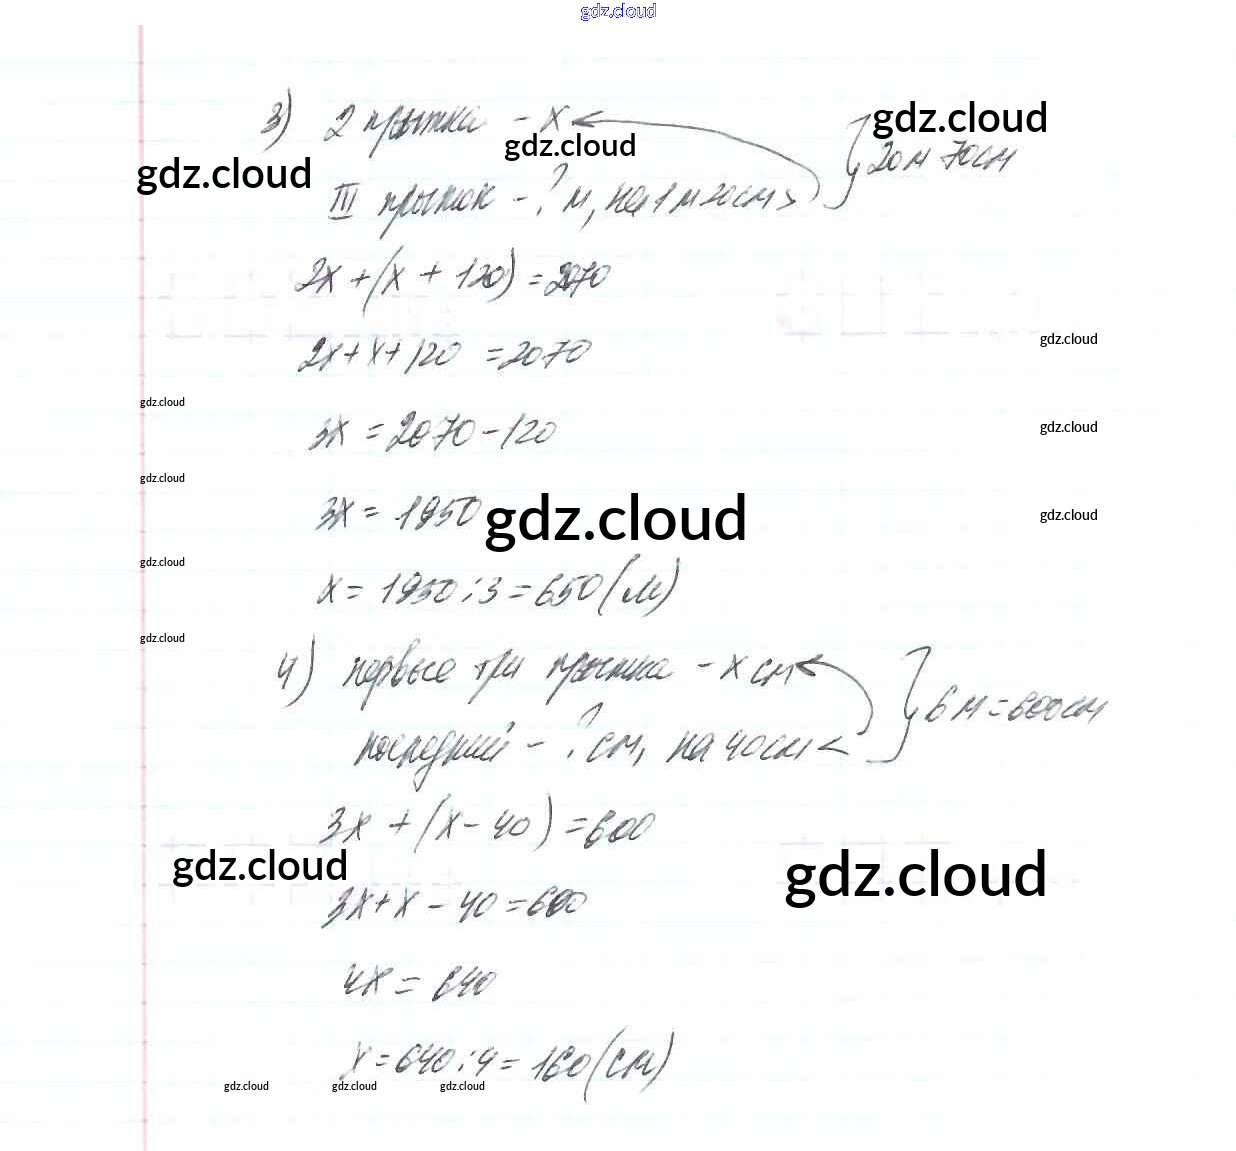 gdz.cloud
3) 2 прыжка - x
gdz.cloud
20м 70см
gdz.cloud
gdz.cloud
III прыжок - ? м, на 1 м 20см >
2x + (x + 120) = 2070
2x + x + 120 = 2070
gdz.cloud
gdz.cloud
3x = 2070 - 120
gdz.cloud
gdz.cloud
3x = 1950
gdz.cloud
gdz.cloud
gdz.cloud
x = 1950 : 3 = 650 (м)
gdz.cloud
4) первые три прыжка - x см
6 м = 600см
последний - ? см, на 40см <
3x + (x - 40) = 600
gdz.cloud
gdz.cloud
3x + x - 40 = 600
4x = 640
x = 640 : 4 = 160 (см)
gdz.cloud
gdz.cloud
gdz.cloud